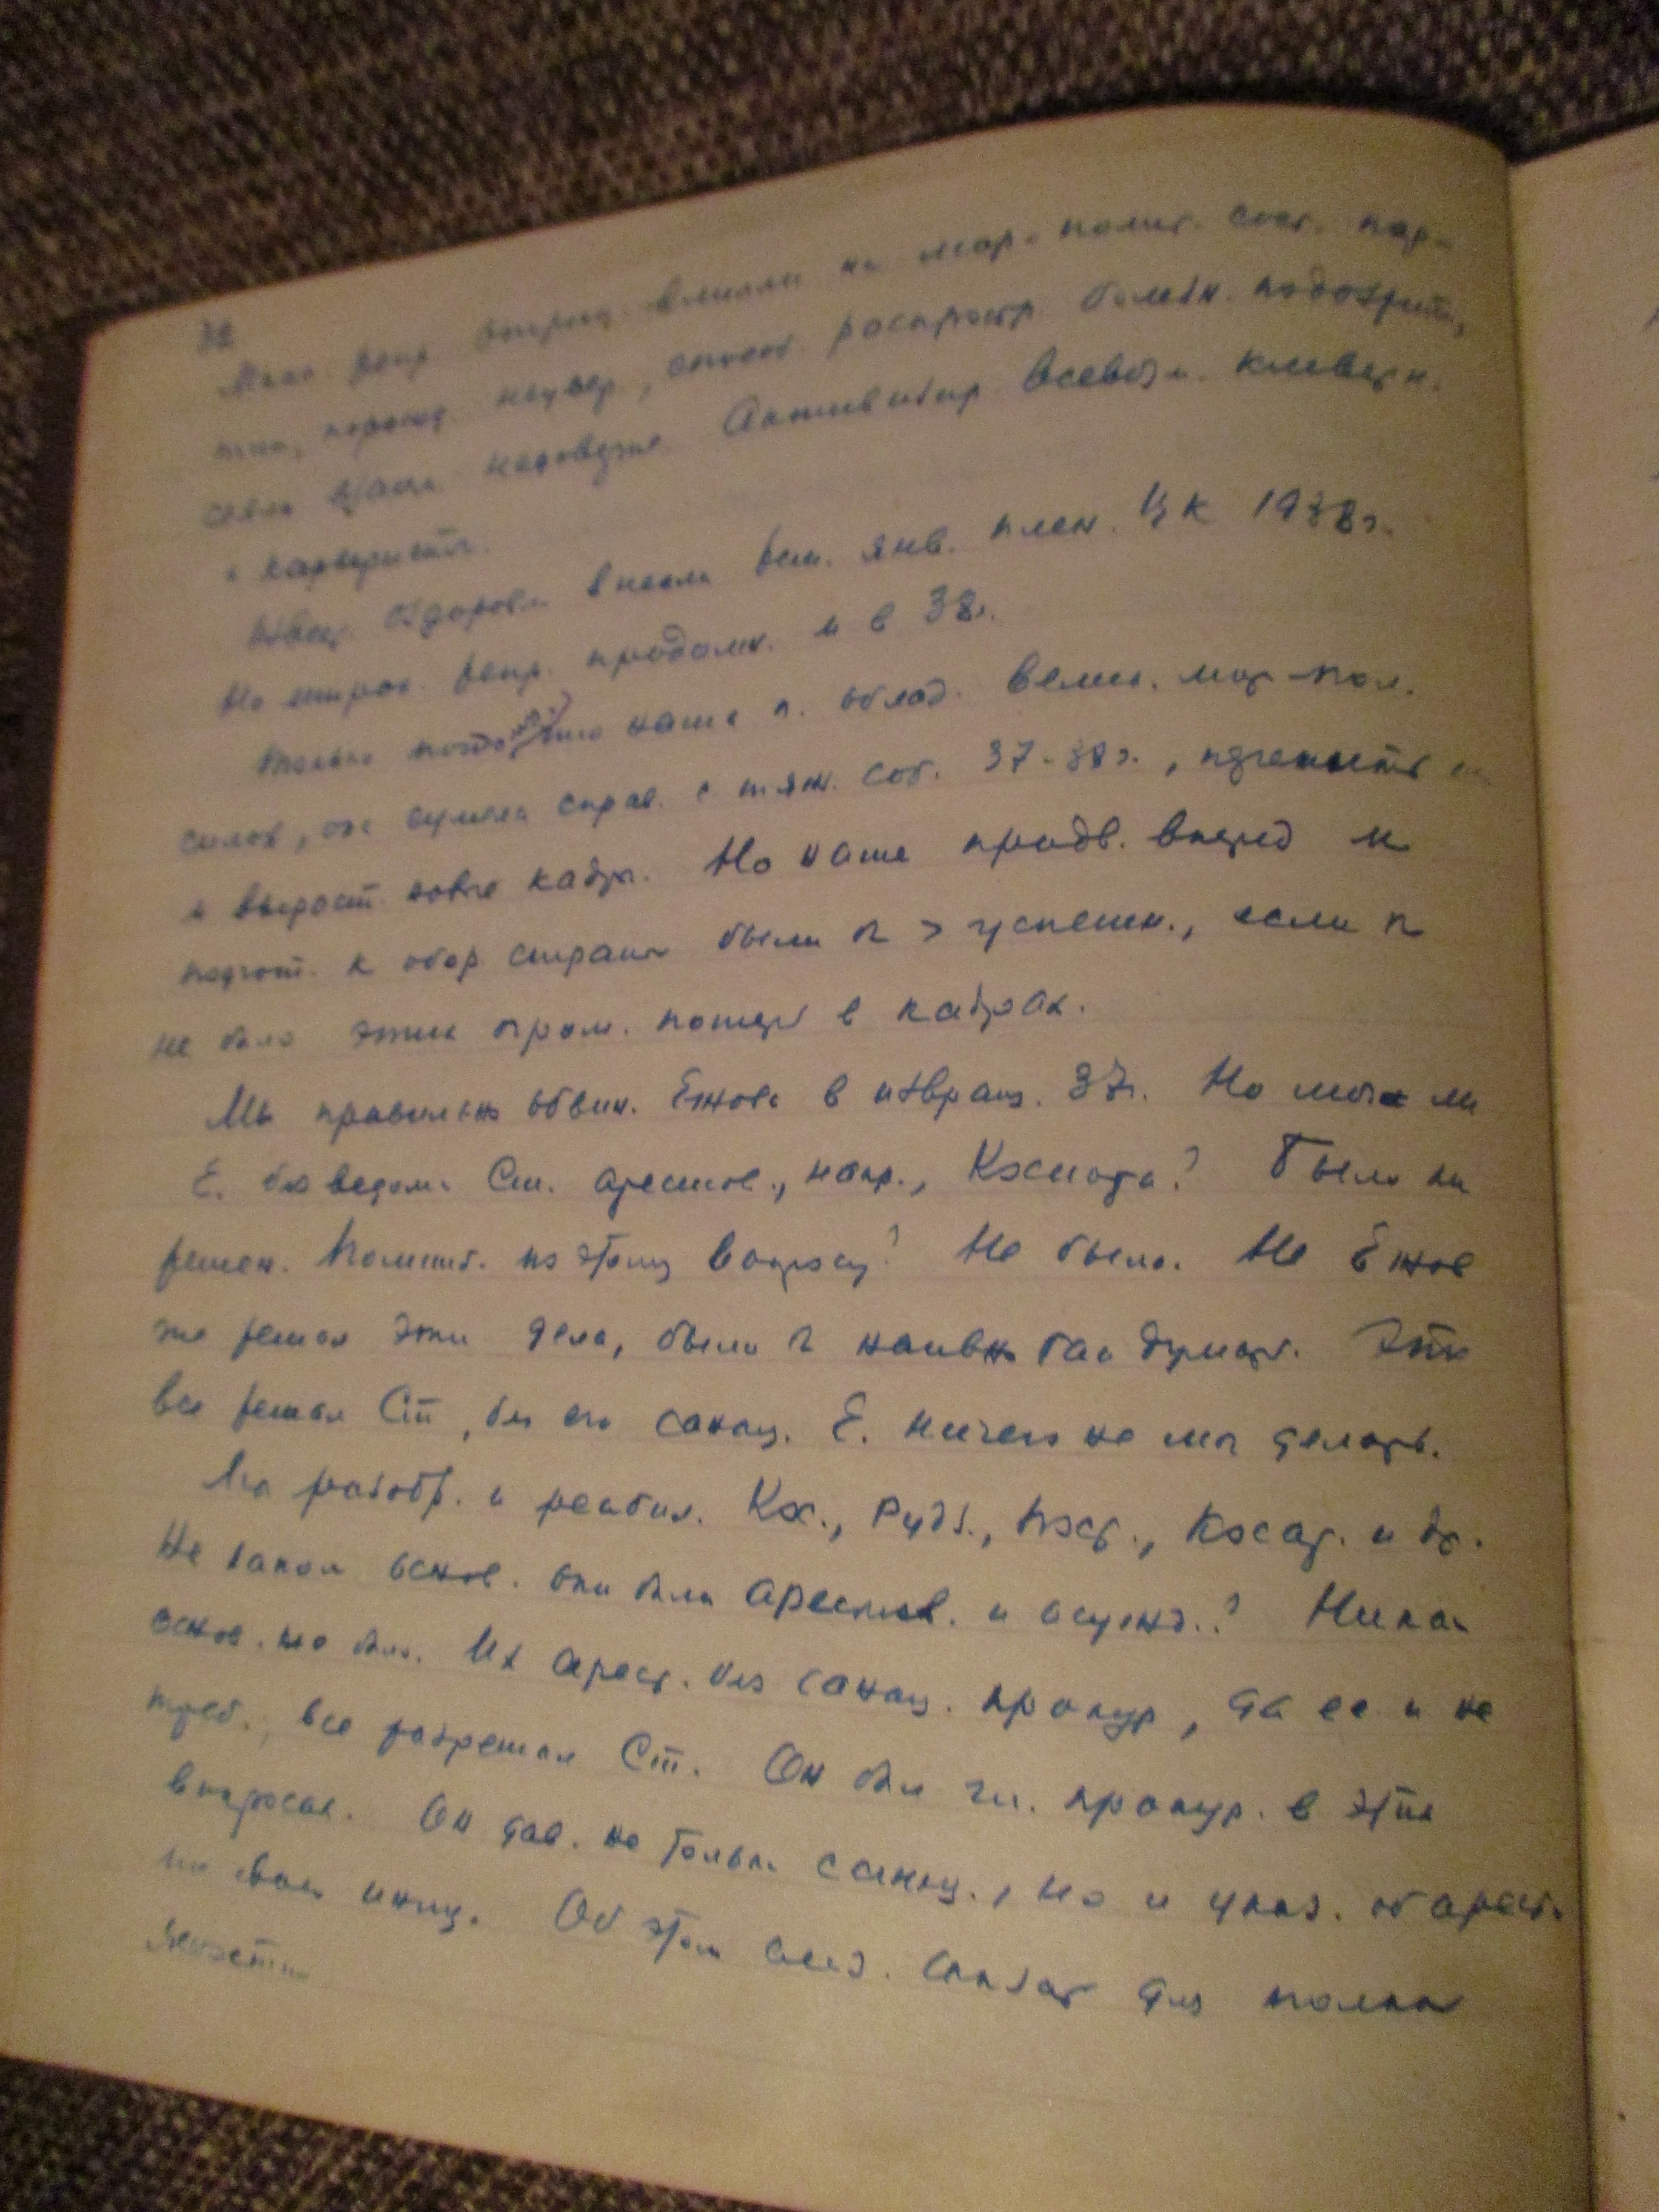 Масс. репр. отриц. влияли на мор.-полит. сост. пар-
тии, порожд. неувер., способ. распростр. болезн. подозрит.,
сеяли взаим. недоверие. Активизир. всевозм. клеветн.
и карьеристы.
Извест. оздоровл. внесли реш. янв. плен. ЦК 1938г.
Но широк. репр. продолж. и в 38г.
Только что наша п. облад. велик. мор-пол.
силой, она сумела справ. с тяж. соб. 37-38г.,
и вырост. новые кадры. Но наше продв. вперед и
подгот. к обор. страны были б > успешн., если б
не было этих огром. потерь в кадрах.
Мы правильно обвин. Ежова в извращ. 37г. Но мог ли
Е. без ведома Ст. арестов., напр., Косиора? Было ли
решен. Политб. по этому вопросу? Не было. Не Ежов
же решал эти дела, было б наивно так думать. Это
все решал Ст, без его санкц. Е. ничего не мог делать.
Мы разобр. и реабил. Кос., Рудз., Пост., Косар. и др.
На каком основ. они были арестов. и осужд.? Никак.
основ. не было. Их арест. без санкц. прокур, да ее и не
треб., все разрешал Ст. Он был гл. прокур. в этих
вопросах. Он дав. не только санкц., но и указ. об арест.
по своей иниц. Об этом след. сказать для полной
ясности